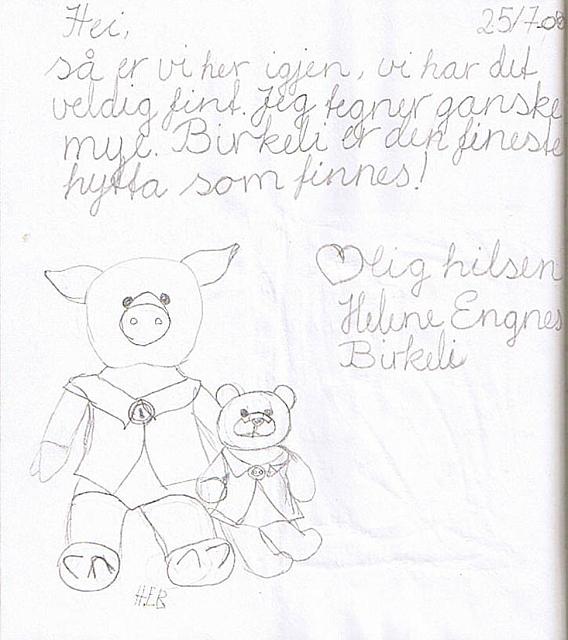 Hei, 25/7-08
så er vi her igjen, vi har det
veldig fint. Jeg tegner ganske
mye. Birkeli er den fineste
hytta som finnes!
♡lig hilsen
Helene Engnes
Birkeli
HEB